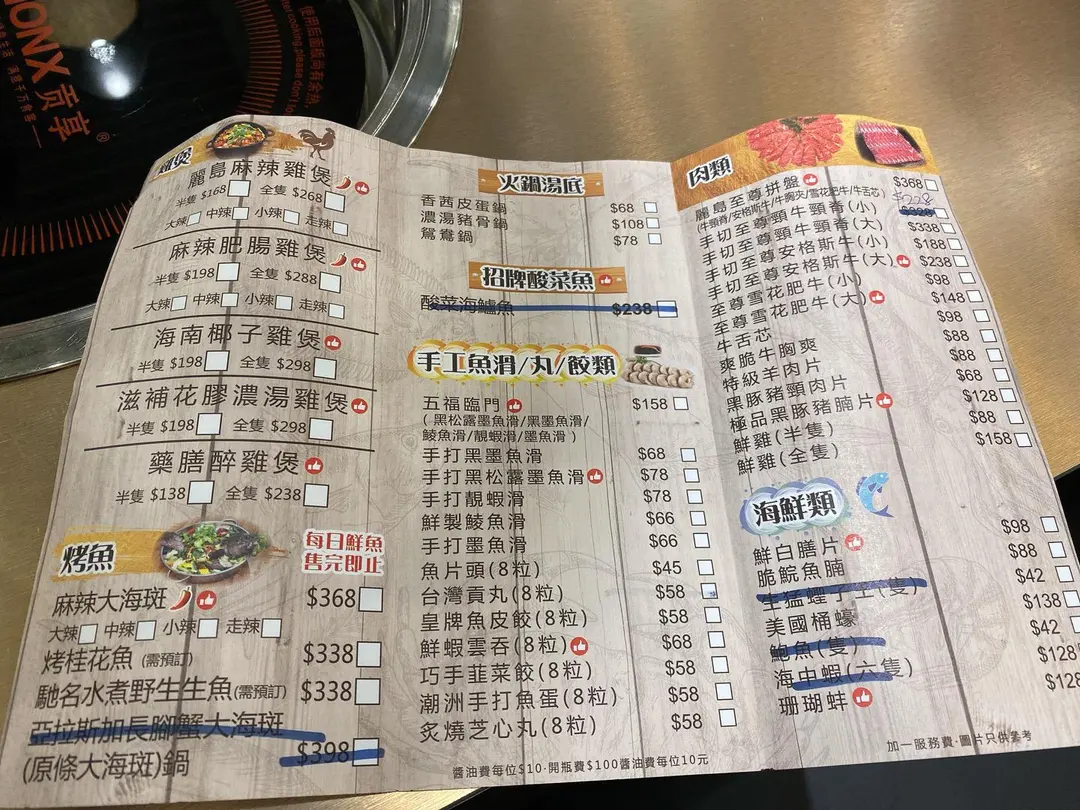 IONX 贡享®
使用后面板尚有余热
雞煲
麗島麻辣雞煲
半隻 $168 全隻 $268
大辣 中辣 小辣 走辣
麻辣肥腸雞煲
半隻 $198 全隻 $288
大辣 中辣 小辣 走辣
海南椰子雞煲
半隻 $198 全隻 $298
滋補花膠濃湯雞煲
半隻 $198 全隻 $298
藥膳醉雞煲
半隻 $138 全隻 $238
烤魚
每日鮮魚
售完即止
麻辣大海斑 $368
大辣 中辣 小辣 走辣
烤桂花魚 (需預訂) $338
馳名水煮野生生魚(需預訂) $338
亞拉斯加長腳蟹大海斑
(原條大海斑)鍋 $398
火鍋湯底
香茜皮蛋鍋 $68
濃湯豬骨鍋 $108
鴛鴦鍋 $78
招牌酸菜魚
酸菜海鱸魚 $238
手工魚滑/丸/餃類
五福臨門 $158
(黑松露墨魚滑/黑墨魚滑/
鯪魚滑/靚蝦滑/墨魚滑)
手打黑墨魚滑 $68
手打黑松露墨魚滑 $78
手打靚蝦滑 $78
鮮製鯪魚滑 $66
手打墨魚滑 $66
魚片頭(8粒) $45
台灣貢丸(8粒) $58
皇牌魚皮餃(8粒) $58
鮮蝦雲吞(8粒) $68
巧手韮菜餃(8粒) $58
潮洲手打魚蛋(8粒) $58
炙燒芝心丸(8粒) $58
醬油費每位$10·開瓶費$100醬油費每位10元
肉類
麗島至尊拼盤 $368
(牛頸脊/安格斯牛/牛胸夾/雪花肥牛/牛舌芯) $228
手切至尊頸牛頸脊(小) $328
手切至尊頸牛頸脊(大) $338
手切至尊安格斯牛(小) $188
手切至尊安格斯牛(大) $238
至尊雪花肥牛(小) $98
至尊雪花肥牛(大) $148
牛舌芯 $98
爽脆牛胸爽 $88
特級羊肉片 $88
黑豚豬頸肉片 $68
極品黑豚豬腩片 $128
鮮雞(半隻) $88
鮮雞(全隻) $158
海鮮類
鮮白膳片 $98
脆鯇魚腩 $88
生猛蟶子王(隻) $42
美國桶蠔 $138
鮑魚(隻) $42
海中蝦(六隻) $128
珊瑚蚌 $128
加一服務費·圖片只供參考